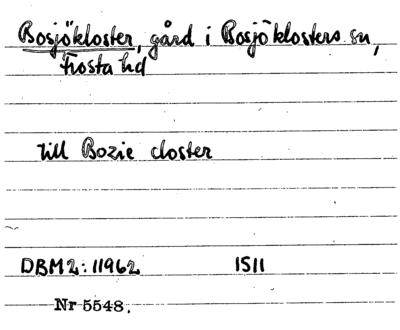 Bosjökloster, gård i Bosjöklosters sn,
Frosta hd
till Bozie closter
DBM 2: 11962 1511
Nr 5548.